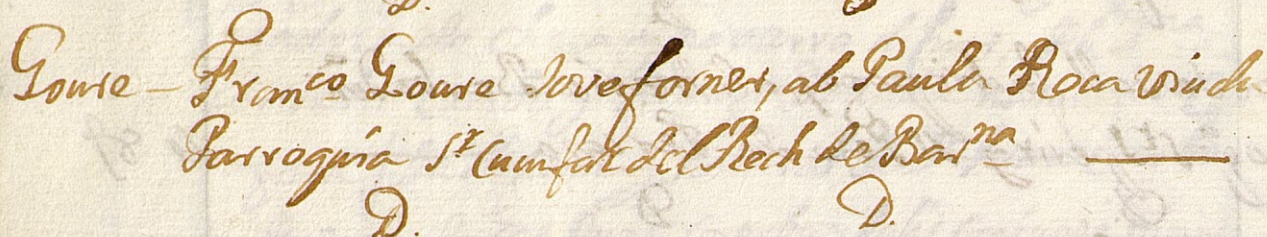 Goure - Fran.co Goure Jove forner, ab Paula Roca viuda
Parroquia St. Cunfat del Rech de Bar.na
D. D.